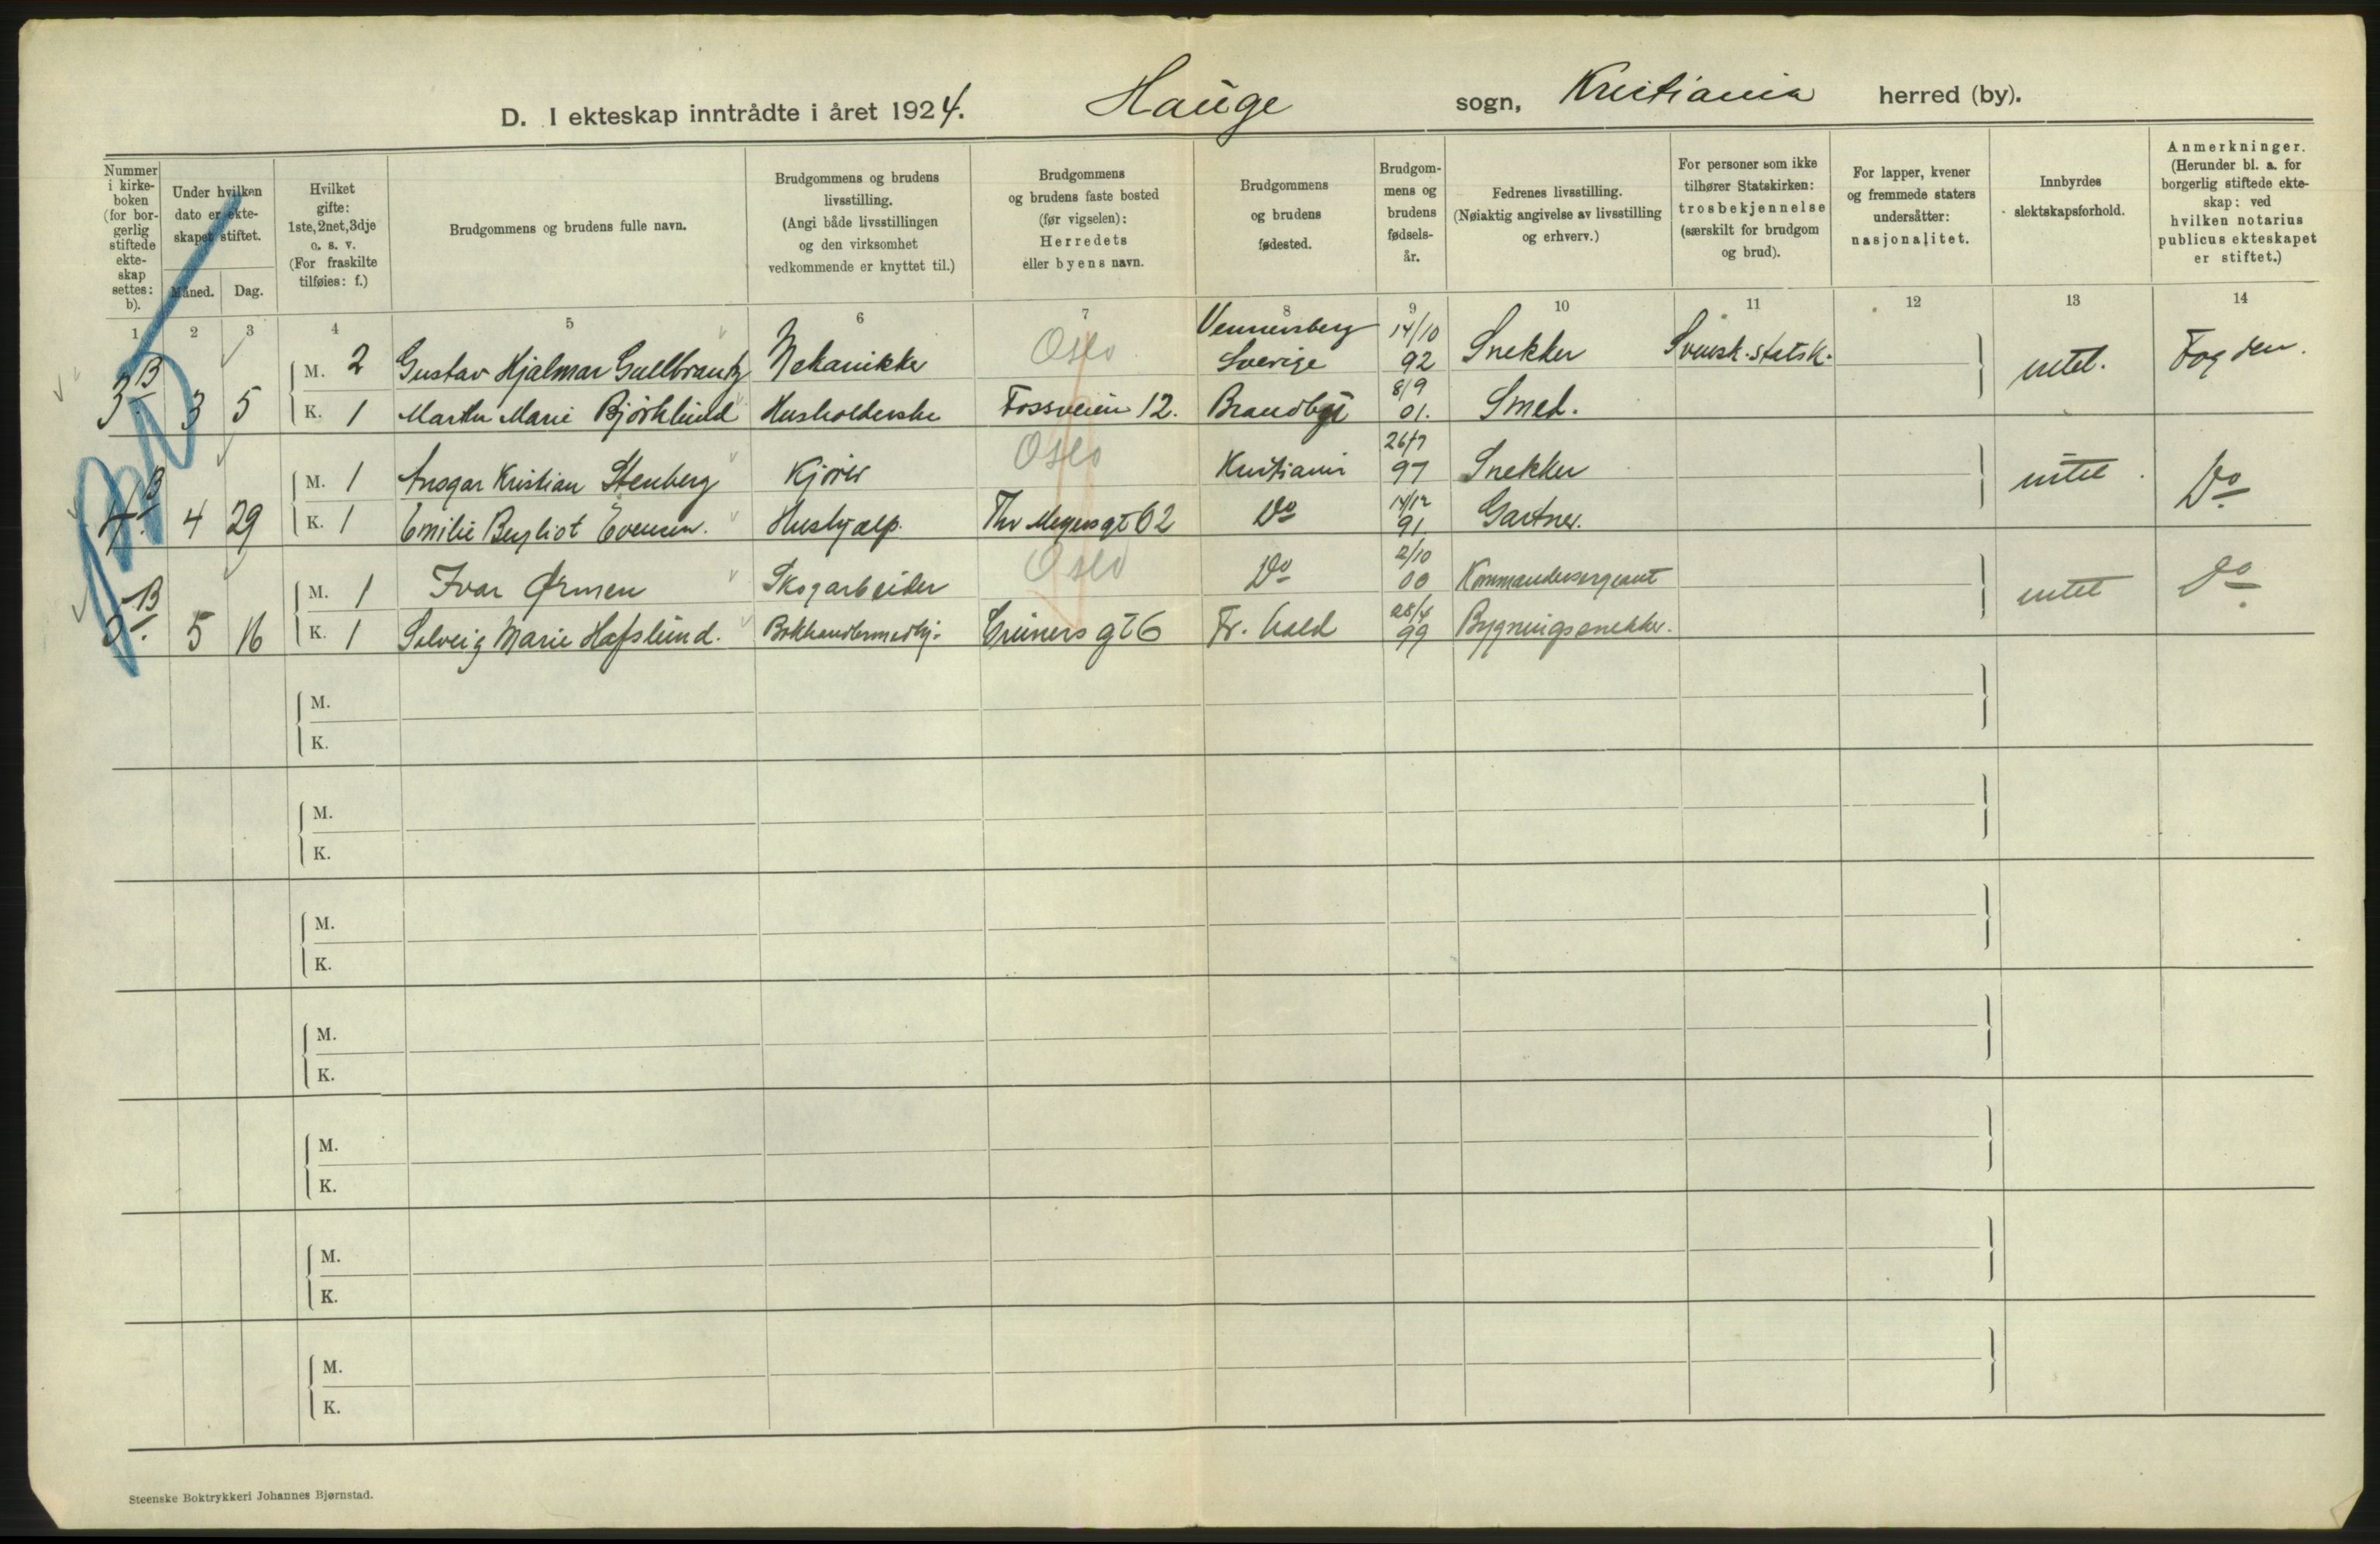 D. I ekteskap inntrådte i året 1924. Hauge sogn, Kristiania herred (by).
Nummer i kirke-boken (for bor-gerlig stiftede ekte-skap settes: b).
Under hvilken dato er ekte-skapet stiftet.
Måned. Dag.
Hvilket gifte: 1ste, 2net, 3dje o. s. v. (For fraskilte tilføies: f.)
Brudgommens og brudens fulle navn.
Brudgommens og brudens livsstilling. (Angi både livsstillingen og den virksomhet vedkommende er knyttet til.)
Brudgommens og brudens faste bosted (før vigselen): Herredets eller byens navn.
Brudgommens og brudens fødested.
Brudgom-mens og brudens fødsels-år.
Fedrenes livsstilling. (Nøiaktig angivelse av livsstilling og erhverv.)
For personer som ikke tilhører Statskirken: trosbekjennelse (særskilt for brudgom og brud).
For lapper, kvener og fremmede staters undersåtter: nasjonalitet.
Innbyrdes slektskapsforhold.
Anmerkninger. (Herunder bl. a. for borgerlig stiftede ekte-skap: ved hvilken notarius publicus ekteskapet er stiftet.)
1 2 3 4 5 6 7 8 9 10 11 12 13 14
3 B. 3 5 M. 2 Gustav Hjalmar Mekanikker Oslo Sverige 14/10 92 Snekker Svensk. statsk. intet. Fogden.
K. 1 Martha Marie Bjørklund Husholderske Fossveien 12. 8/9 01. Smed.
4 B. 4 29 M. 1 Ansgar Kristian Stenberg Kjører Oslo Kristiania 26/7 97 Snekker intet Do
K. 1 Emilie Evensen. Hushjælp. Thv Meyersgt 62 Do 14/12 91 Gartner.
5 B. 5 16 M. 1 Ivar Ørmen Skogarbeider Oslo Do 2/10 00 Kommandersergeant intet Do
K. 1 Solveig Marie Hafslund. Bokhandlermedhj. Grüners gt 6 Fr. hald 28/4 99 Bygningssnekker.
M.
K.
M.
K.
M.
K.
M.
K.
M.
K.
M.
K.
M.
K.
Steenske Boktrykkeri Johannes Bjørnstad.